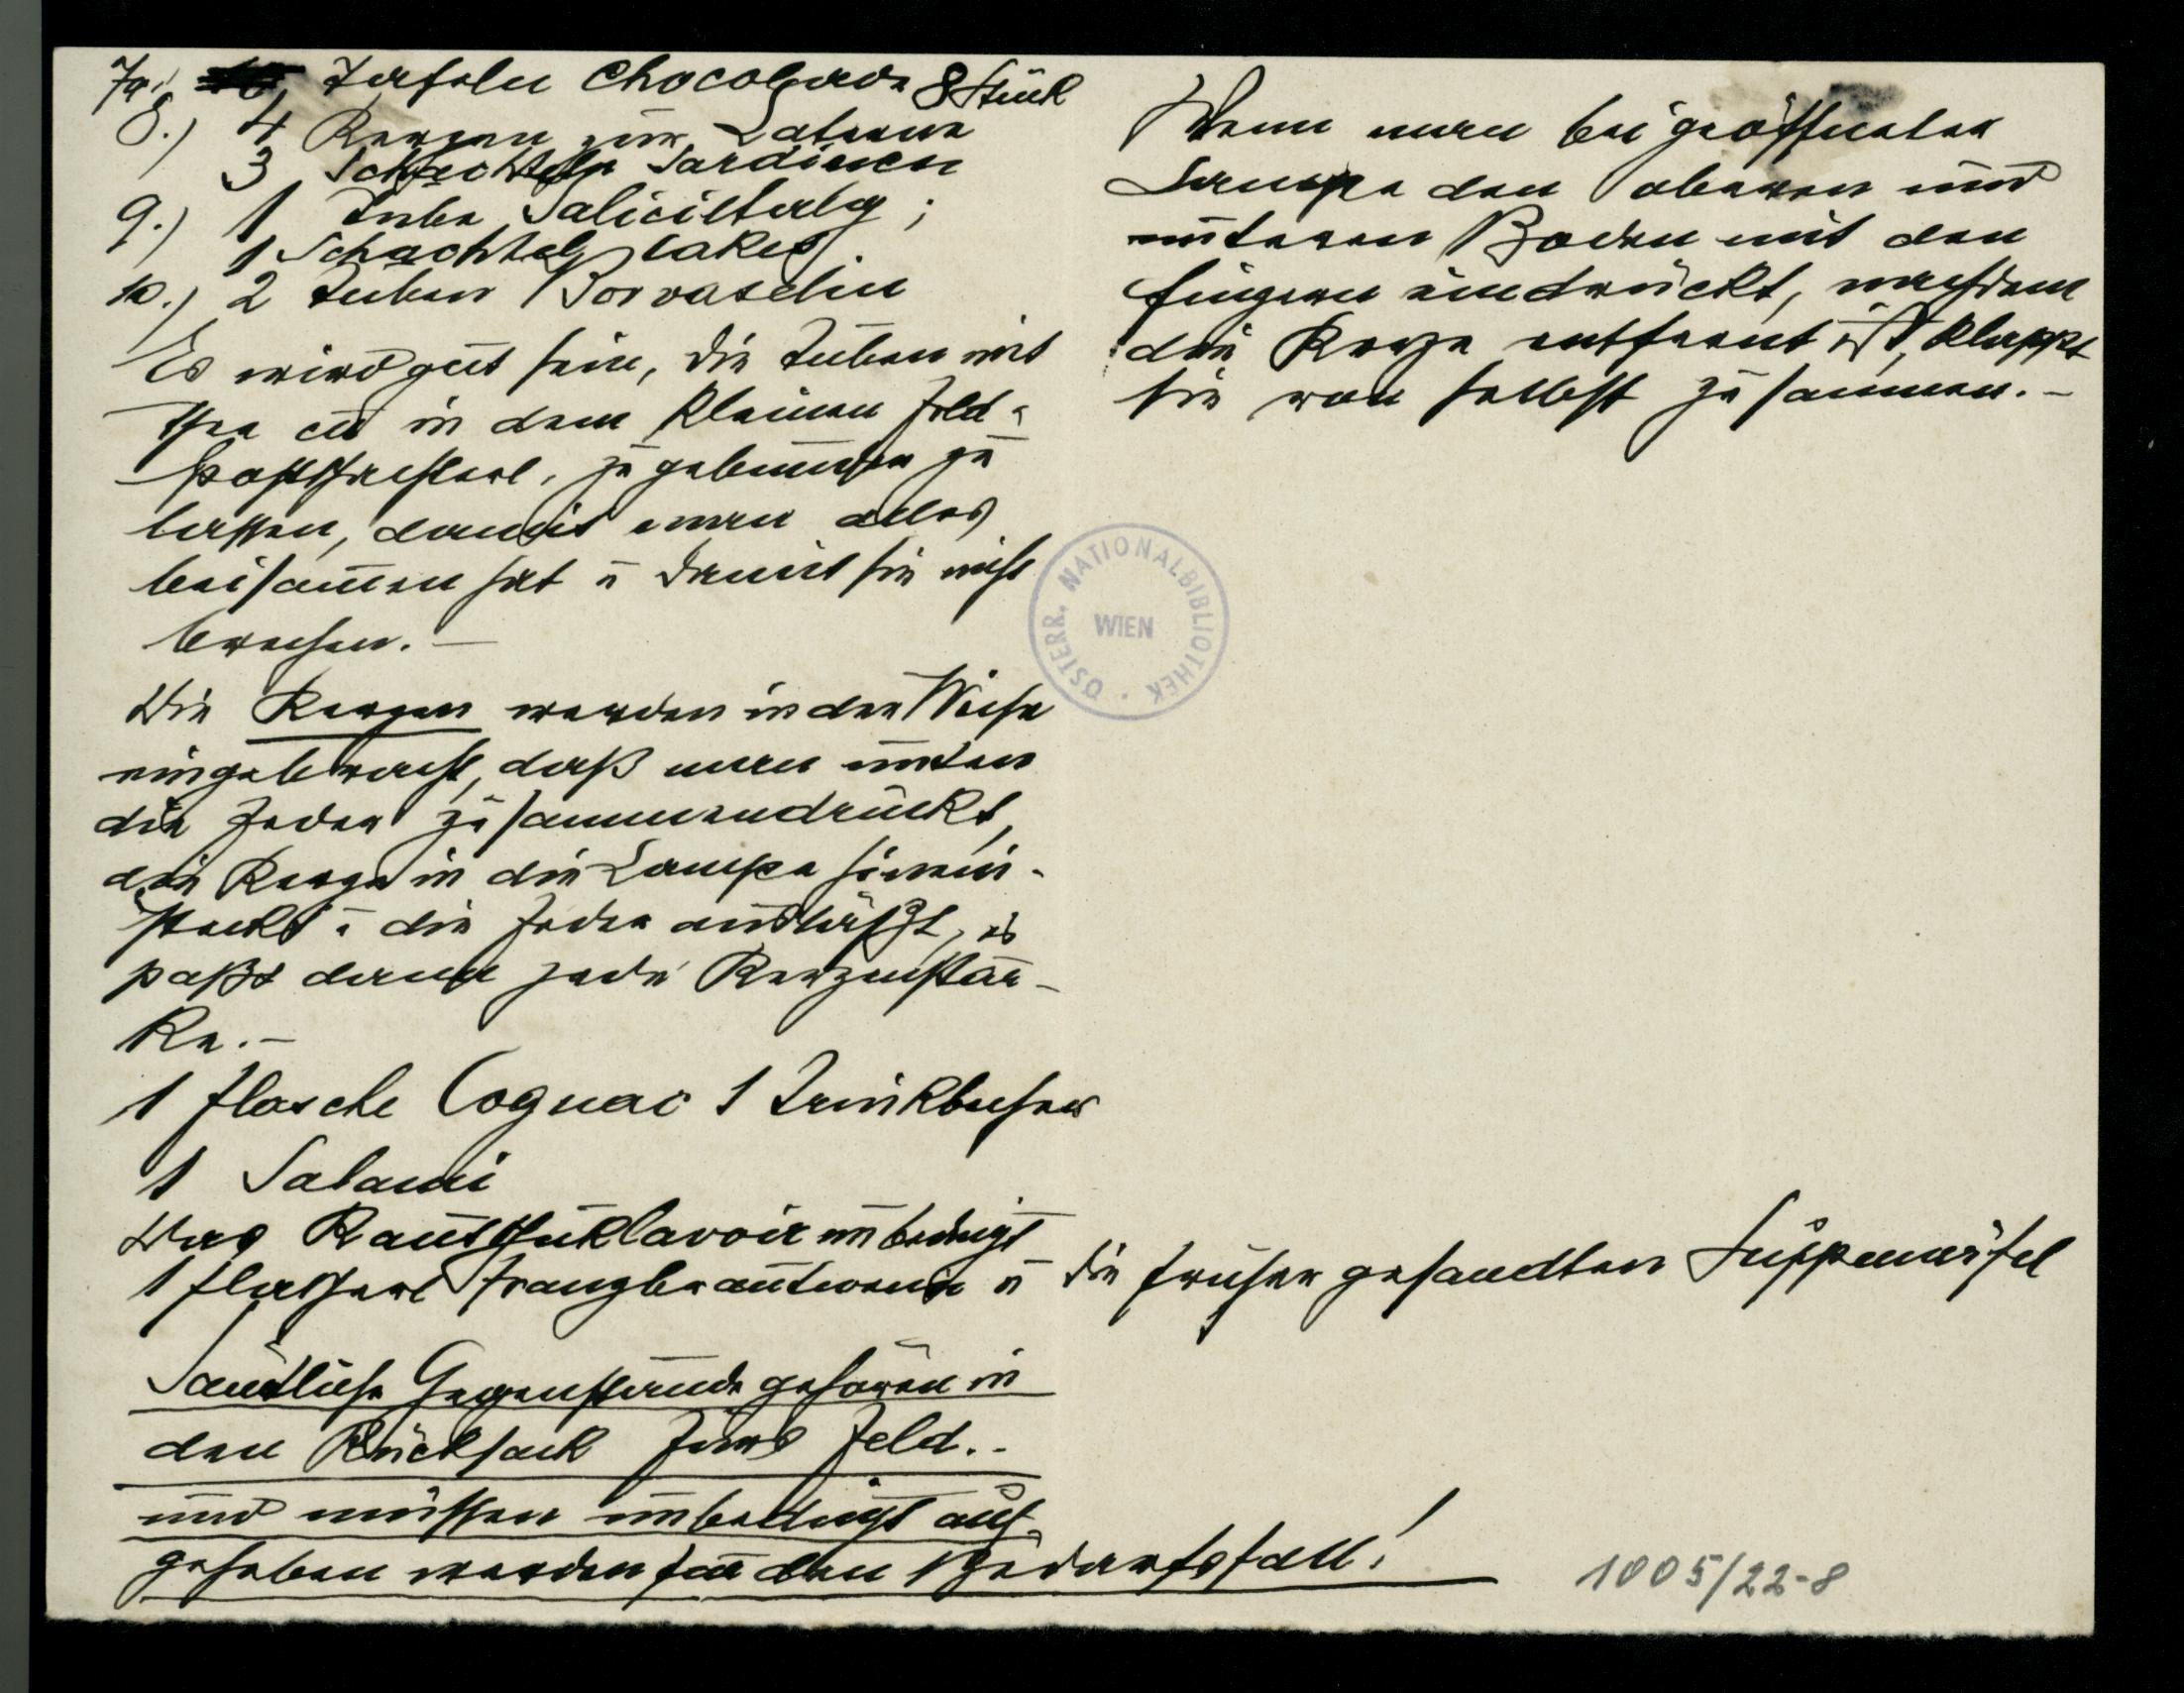 7a.) Tafeln Chocolade 8 Stück
8.) 4 Kerzen zur Laterne
3 Schachteln Sardinen
9.) 1 Tube Saliciltalg;
1 Schachtel Cakes
10.) 2 Tuben Borvaselin
Es wird gut sein, die Tuben mit
Thee etc in dem kleinen Feld-
postschachterl, zu gebunden zu
lassen, damit man alles
beisammen hat u damit sie nicht
brechen. —
Die Kerzen werden in der Weise
eingebracht, daß man unten
die Feder zusammendrückt,
die Kerze in die Lampe hinein-
steckt u die Feder ausläßt, es
paßt dann jede Kerzenstär-
ke. —
1 Flasche Cognac 1 Trinkbecher
1 Salami
Das Kautschuklavoir unbedingt
1 Flascherl Franzbrantwein u die früher gesandten Suppenwürfel
Sämtliche Gegenstände gehören in
den Rücksack fürs Feld. -
und müssen unbedingt auf-
gehoben werden für den Bedarfsfall!
Wenn man bei geöffneter
Lampe den oberen und
unteren Boden mit den
Fingern eindrückt, nachdem
die Kerze entfernt ist, klappt
sie von selbst zusammen. —
ÖSTERR. NATIONALBIBLIOTHEK · WIEN
1005/22-8